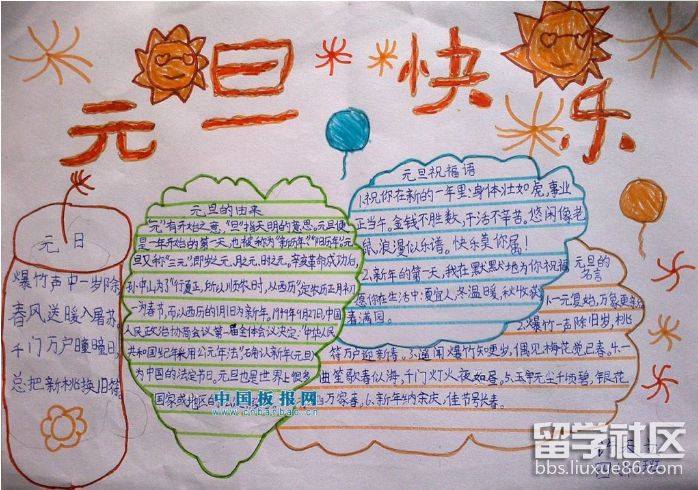 元旦快乐
元日
爆竹声中一岁除
春风送暖入屠苏
千门万户曈曈日
总把新桃换旧符
元旦的由来
"元"有开始之意,"旦"指天明的意思。元旦便
是一年开始的第一天,也被称为"新历年""阳历年"元
旦又称"三元",即岁之元,月之元,时之元。辛亥革命成功后,
孙中山为了"行夏正,所以顺农时,从西历"定农历正月初一
为春节,而以西历的1月1日为新年。1949年9月27日,中国
人民政治协商会议第一届全体会议决定:"中华人民
共和国纪年采用公元年法"
为中国的法定节日。元旦也是世界上很多
国家或地区的
元旦祝福语
1.祝你在新的一年里:身体壮如虎,事业
正当午。金钱不胜数,干活不辛苦。悠闲像老
鼠,浪漫似乐谱。快乐莫你属!
2.新年的第一天,我在默默地为你祝福
愿你在生活中:夏宜人,冬温暖,秋收获
春满园。
元旦的
名言
1.一元复始,万象更新
2.爆竹一声除旧岁,桃
符万户迎新春。3.遥闻爆竹知更岁,偶见梅花觉已春。4.一
曲笙歌春似海,千门灯火夜如昼。5.玉宇无尘千顷碧,银花
万家春。6.新年纳余庆,佳节号长春。
中国板报网
www.cnbanbao.cn
留学社区
bbs.liuxue86.com